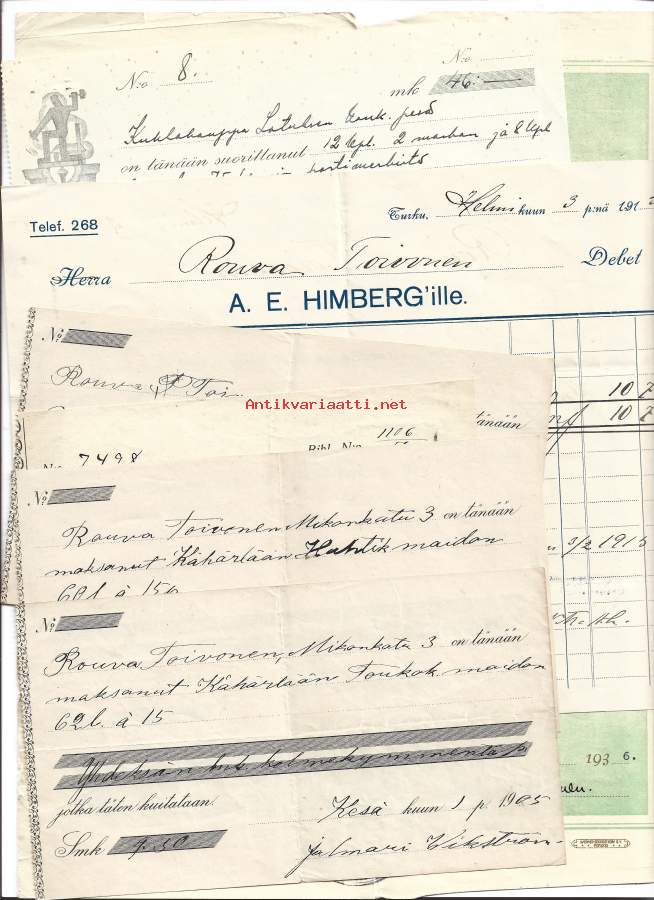 N:o 8.
N:o
mk 46:—
Kukkakauppa
on tänään suorittanut 12 kpl. 2 markan ja 8 kpl
Telef. 268
Turku, Helmi kuun 3 p:nä 191
Herra Rouva Toivonen Debet
A. E. HIMBERG'ille.
10 7
10 7
3/2 1913
No
Rouva Toi
Antikvariaatti.net
tänään
No 7498
Bibl. N:o 1106
No
Rouva Toivonen, Mikonkatu 3 on tänään
maksanut Kähärlään Huhtik maidon
62 l. à 15
No
Rouva Toivonen, Mikonkatu 3 on tänään
maksanut Kähärlään Toukok. maidon
62 l. à 15
Yhdeksän mk. kolmekymmentä p.
jotka täten kuitataan.
Kesä kuun 1 p. 1905
Smk 9:30
Jalmari Vikström
1936.